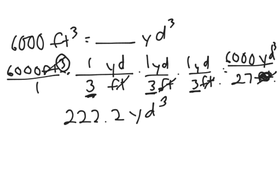 6000 ft³ = ___ yd³
6000 ft³/1 · 1 yd/3 ft · 1yd/3 ft · 1yd/3 ft = 6000 yd³/27
222.2 yd³